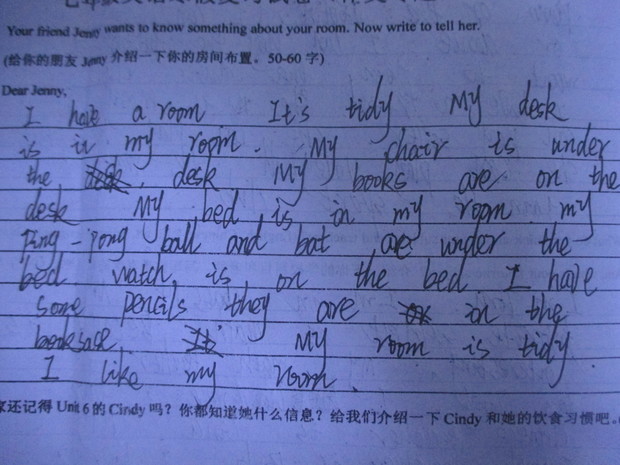 Your friend Jenny wants to know something about your room. Now write to tell her.
(给你的朋友 Jenny 介绍一下你的房间布置。50-60 字)
Dear Jenny,
I have a room It's tidy My desk
is in my room. My chair is under
the desk My books are on the
desk My bed is in my room my
Ping-pong ball and bat are under the
bed watch is on the bed I have
some pencils they are in the
My room is tidy
I like my room.
还记得 Unit 6 的 Cindy 吗？你都知道她什么信息？给我们介绍一下 Cindy 和她的饮食习惯吧。